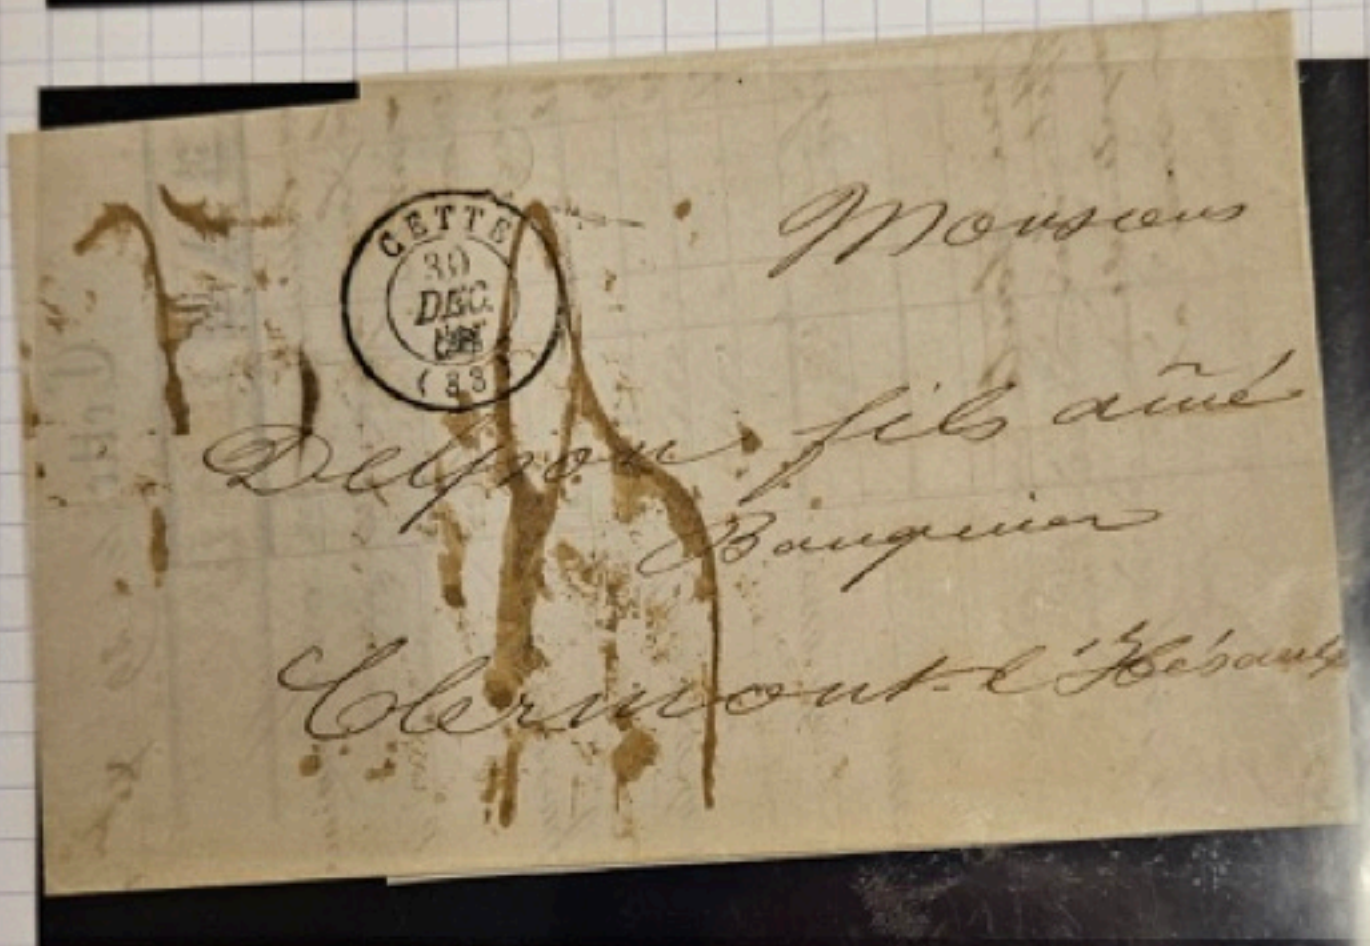 CETTE
30
DEC.
(33)
Monsieur
Delpon fils aîné
Banquier
Clermont-l'Hérault